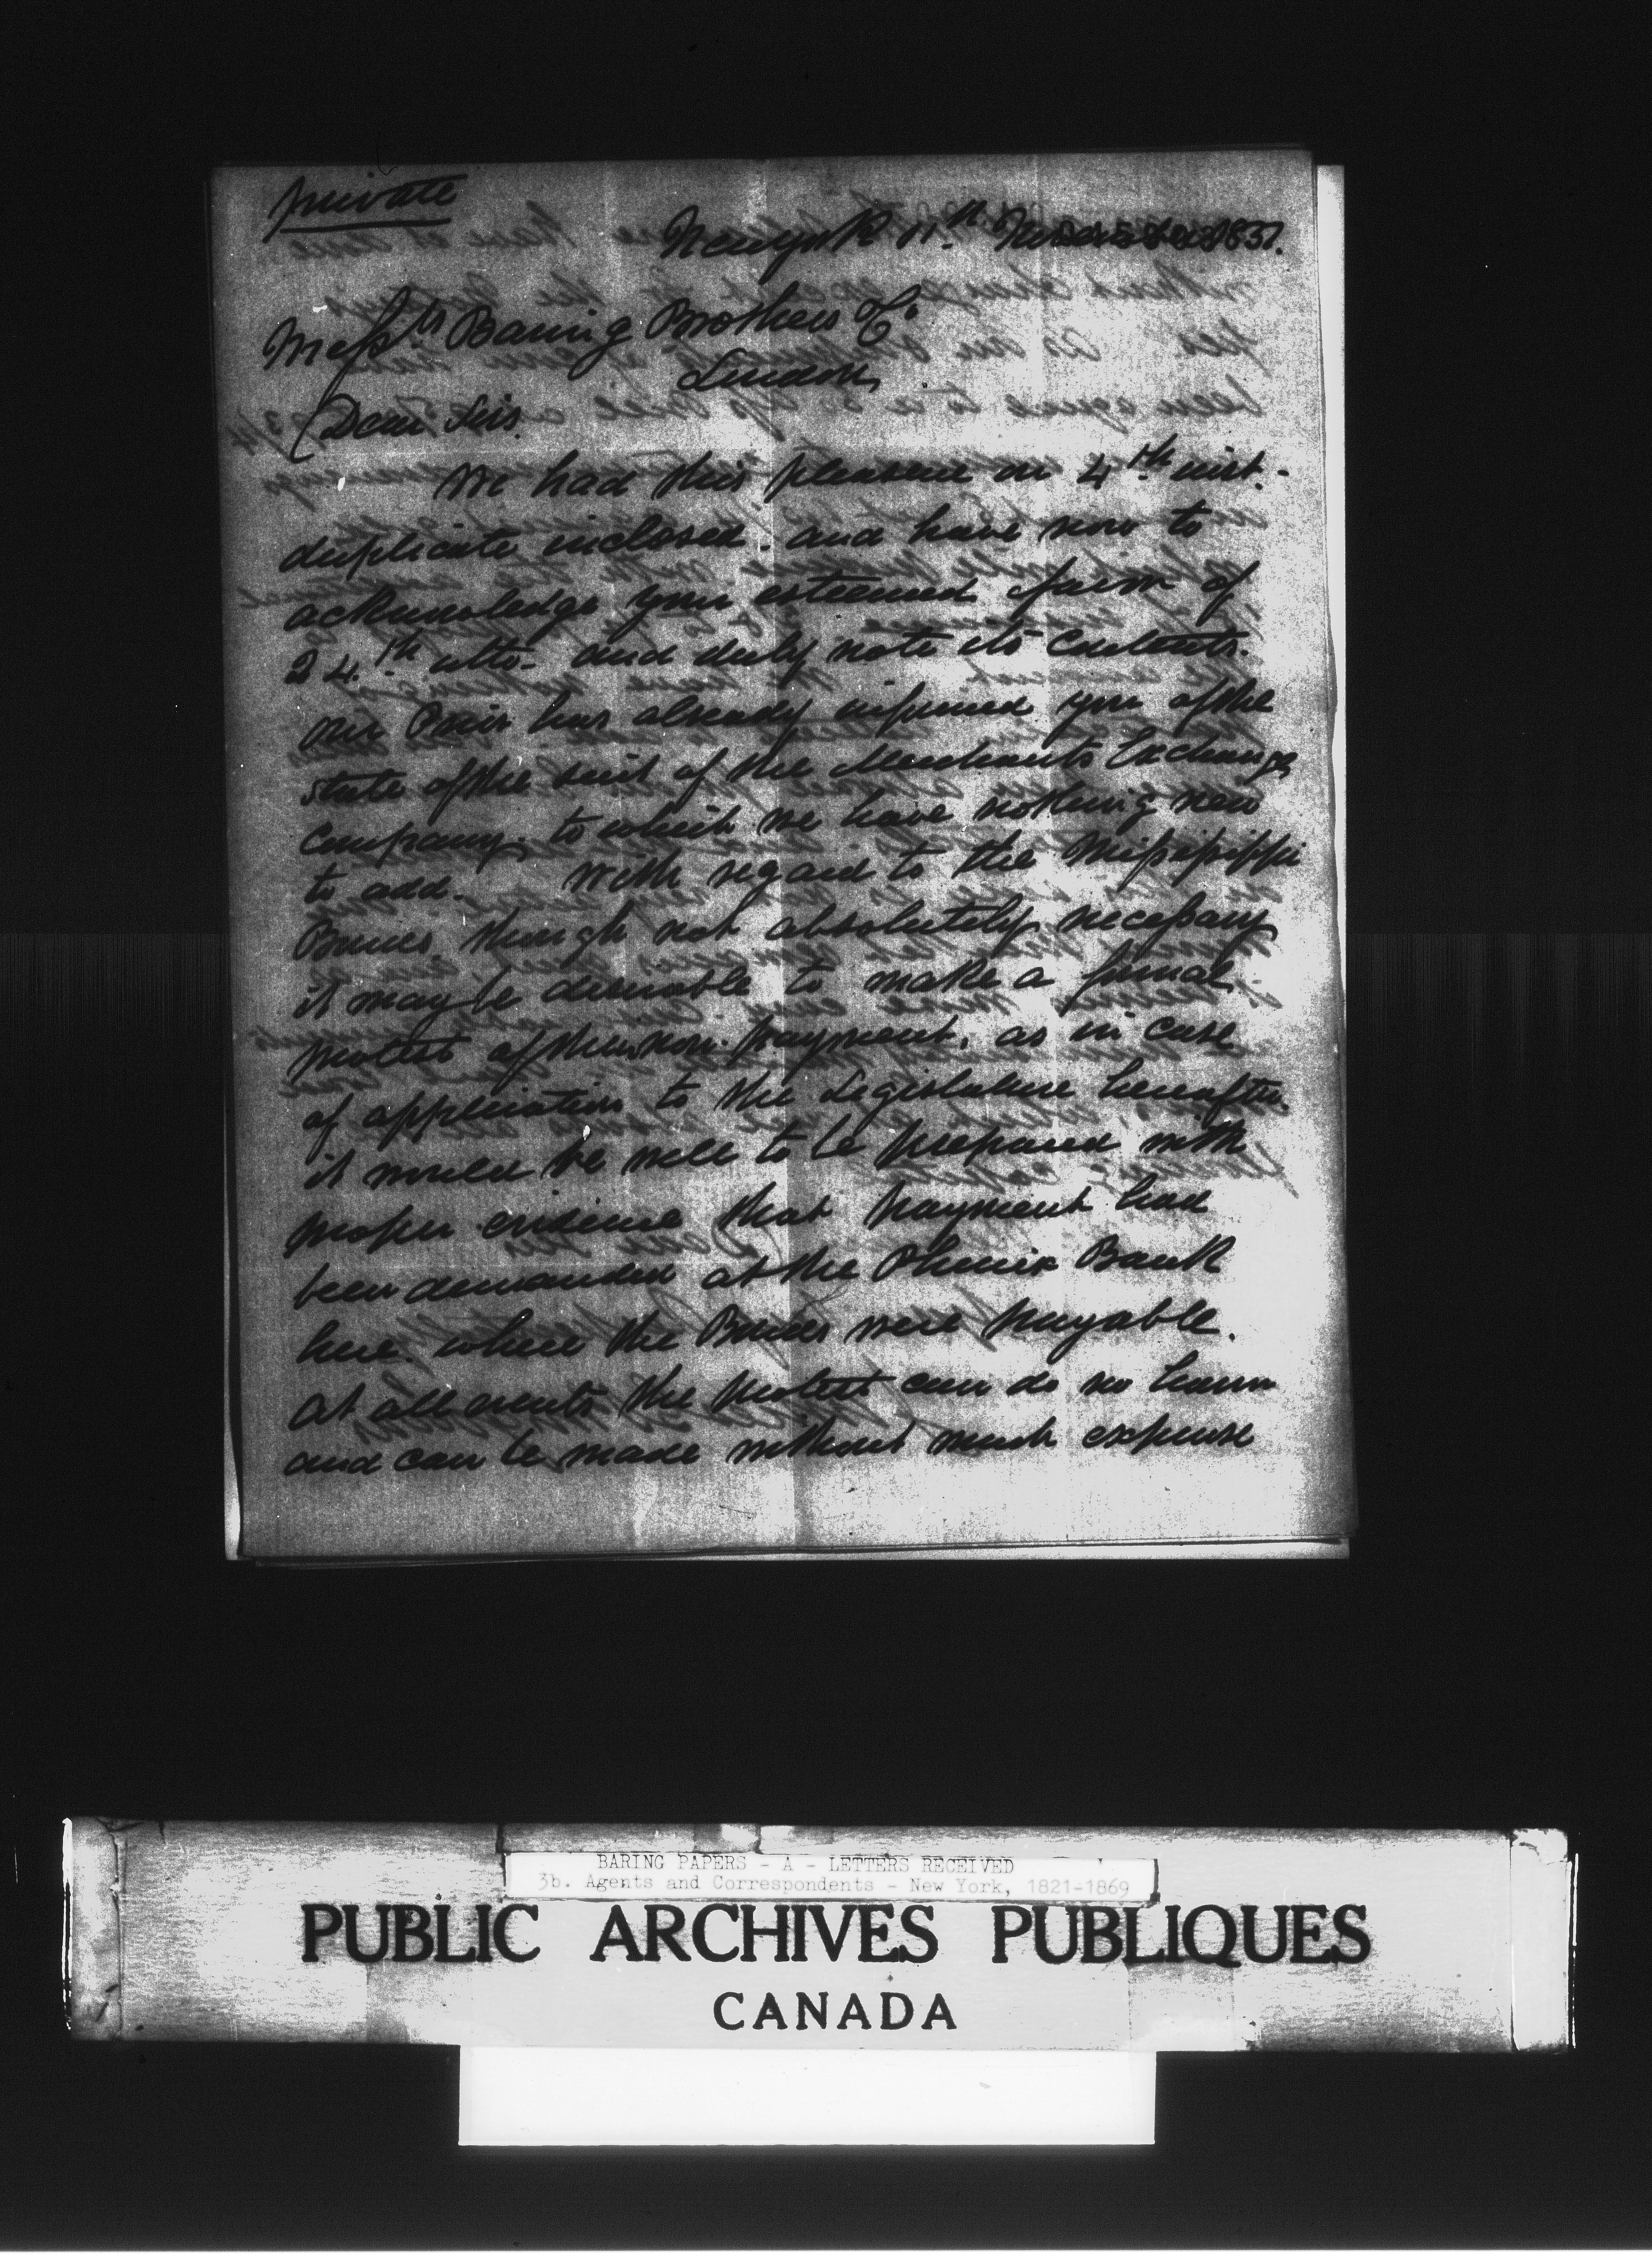 private
New york 11th November 1851.
Messrs Baring Brothers Co
London
Dear Sirs.
We had this pleasure on 4th inst.
duplicate inclosed. and have now to
acknowledge your esteemed favor of
24th ulto. and duly note its contents.
our has already informed you of the
state of the suit of the Merchants Exchange
Company, to which we have nothing new
to add. With regard to the Mississippi
Bonds though not absolutely necessary
it may be desirable to make a formal
protest of their non-payment, as in case
of application to the Legislature hereafter.
it would be well to be prepared with
proper evidence that payment had
been demanded at the Phenix Bank
here where the Bonds were payable.
At all events the protest can do no harm
and can be made without much expense
BARING PAPERS - A - LETTERS RECEIVED
3b. Agents and Correspondents - New York, 1821-1869
PUBLIC ARCHIVES PUBLIQUES
CANADA